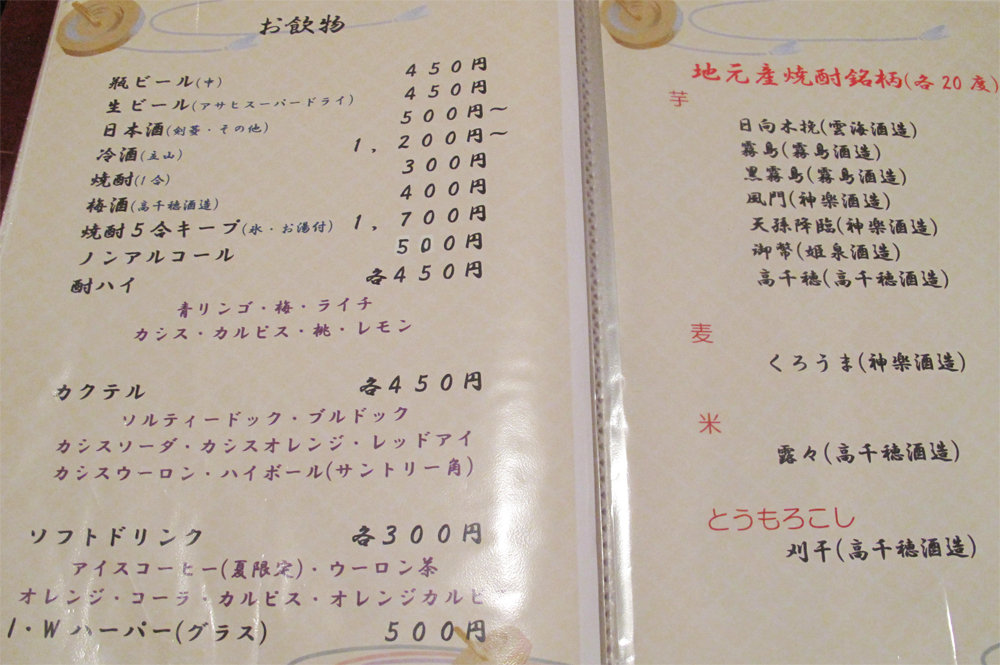 お飲物
瓶ビール(中) 450円
生ビール(アサヒスーパードライ) 450円
日本酒(剣菱・その他) 500円～
冷酒(立山) 1,200円～
焼酎(1合) 300円
梅酒(高千穂酒造) 400円
焼酎5合キープ(氷・お湯付) 1,700円
ノンアルコール 500円
酎ハイ 各450円
青リンゴ・梅・ライチ
カシス・カルピス・桃・レモン
カクテル 各450円
ソルティードック・ブルドック
カシスソーダ・カシスオレンジ・レッドアイ
カシスウーロン・ハイボール(サントリー角)
ソフトドリンク 各300円
アイスコーヒー(夏限定)・ウーロン茶
オレンジ・コーラ・カルピス・オレンジカルピ
I・Wハーパー(グラス) 500円
地元産焼酎銘柄(各20度)
芋
日向木挽(雲海酒造)
霧島(霧島酒造)
黒霧島(霧島酒造)
風門(神楽酒造)
天孫降臨(神楽酒造)
御幣(姫泉酒造)
高千穂(高千穂酒造)
麦
くろうま(神楽酒造)
米
露々(高千穂酒造)
とうもろこし
刈干(高千穂酒造)